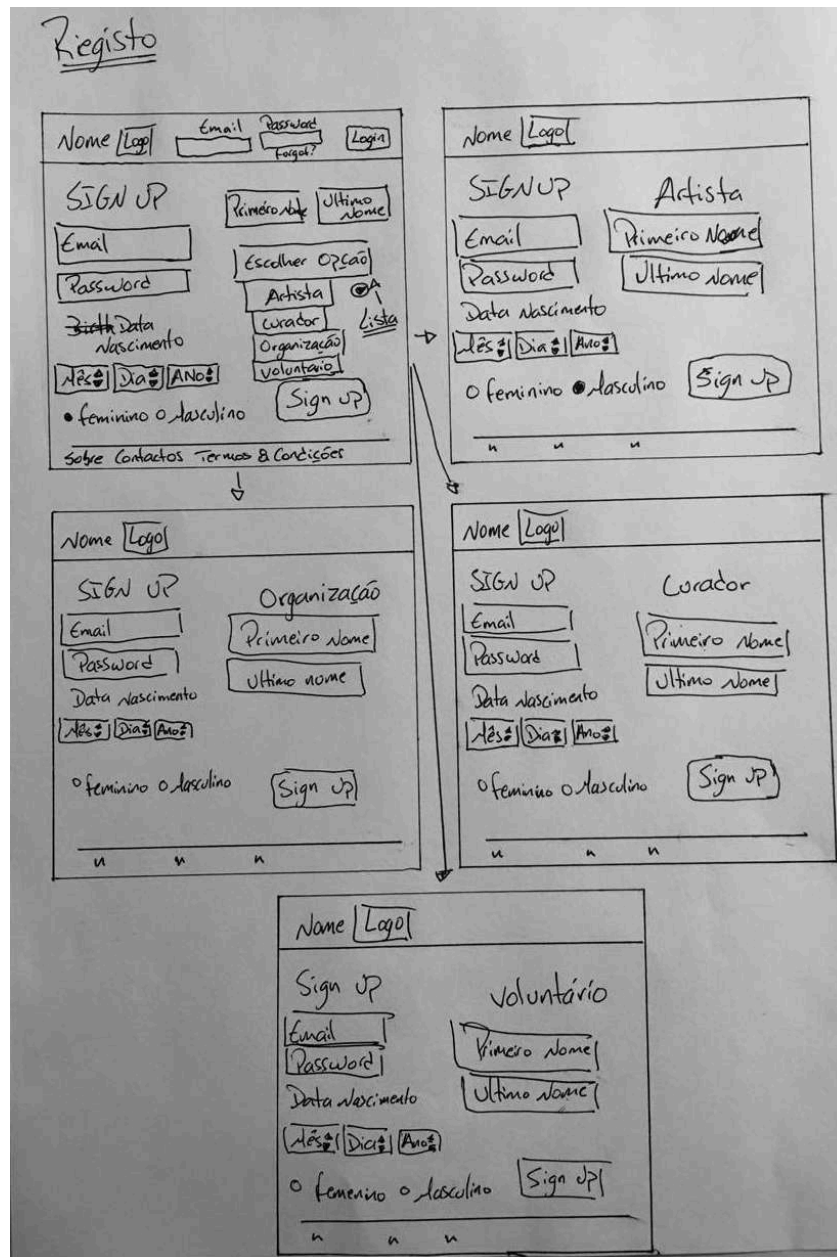 Riegisto
Nome Logo Email Password Login
Forgot?
SIGN UP
Primeiro Nome Ultimo Nome
Email
Password
Data Nascimento
Mês Dia ANo
feminino o Masculino
Escolher Opção
Artista
Curador
Organização
Voluntario
Lista
Sign up
Sobre Contactos Termos & Condições
Nome Logo
SIGN UP Artista
Email Primeiro Nome
Password Ultimo Nome
Data Nascimento
Mês Dia Ano
O feminino Masculino Sign Up
" " "
Nome Logo
SIGN UP Organização
Email Primeiro Nome
Password Ultimo nome
Data Nascimento
Mês Dia Ano
O feminino O Masculino Sign Up
" " "
Nome Logo
SIGN UP Curador
Email Primeiro Nome
Password Ultimo Nome
Data Nascimento
Mês Dia Ano
O feminino O Masculino Sign Up
" " "
Nome Logo
Sign Up Voluntário
Email Primeiro Nome
Password Ultimo Nome
Data Nascimento
Mês Dia Ano
O femenino o Masculino Sign Up
" " "